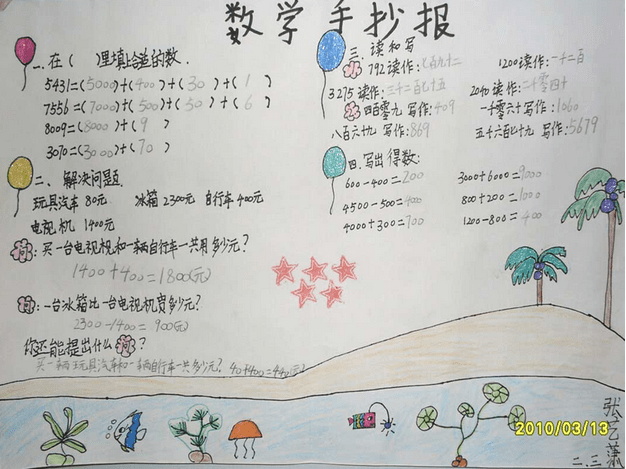 数学手抄报
一.在( )里填上合适的数.
5431=(5000)+(400)+(30)+(1)
7556=(7000)+(500)+(50)+(6)
8009=(8000)+(9)
3070=(3000)+(70)
二、解决问题.
玩具汽车 80元 冰箱2300元 自行车400元
电视机 1400元
问:买一台电视机和一辆自行车一共用多少元?
1400+400=1800(元)
问:一台冰箱比一台电视机贵多少元?
2300-1400=900(元)
你还能提出什么问?
买一辆玩具汽车和一辆自行车一共多少元? 40+400=440(元)
三、读和写
792读作:七百九十二 1200读作:一千二百
3275读作:三千二百七十五 2040读作:二千零四十
四百零九 写作:409 一千零六十 写作:1060
八百六十九 写作:869 五千六百七十九 写作:5679
四.写出得数:
600-400=200 3000+6000=9000
4500-500=4000 800+200=1000
4000+300=700 1200-800=400
2010/03/13
二.三